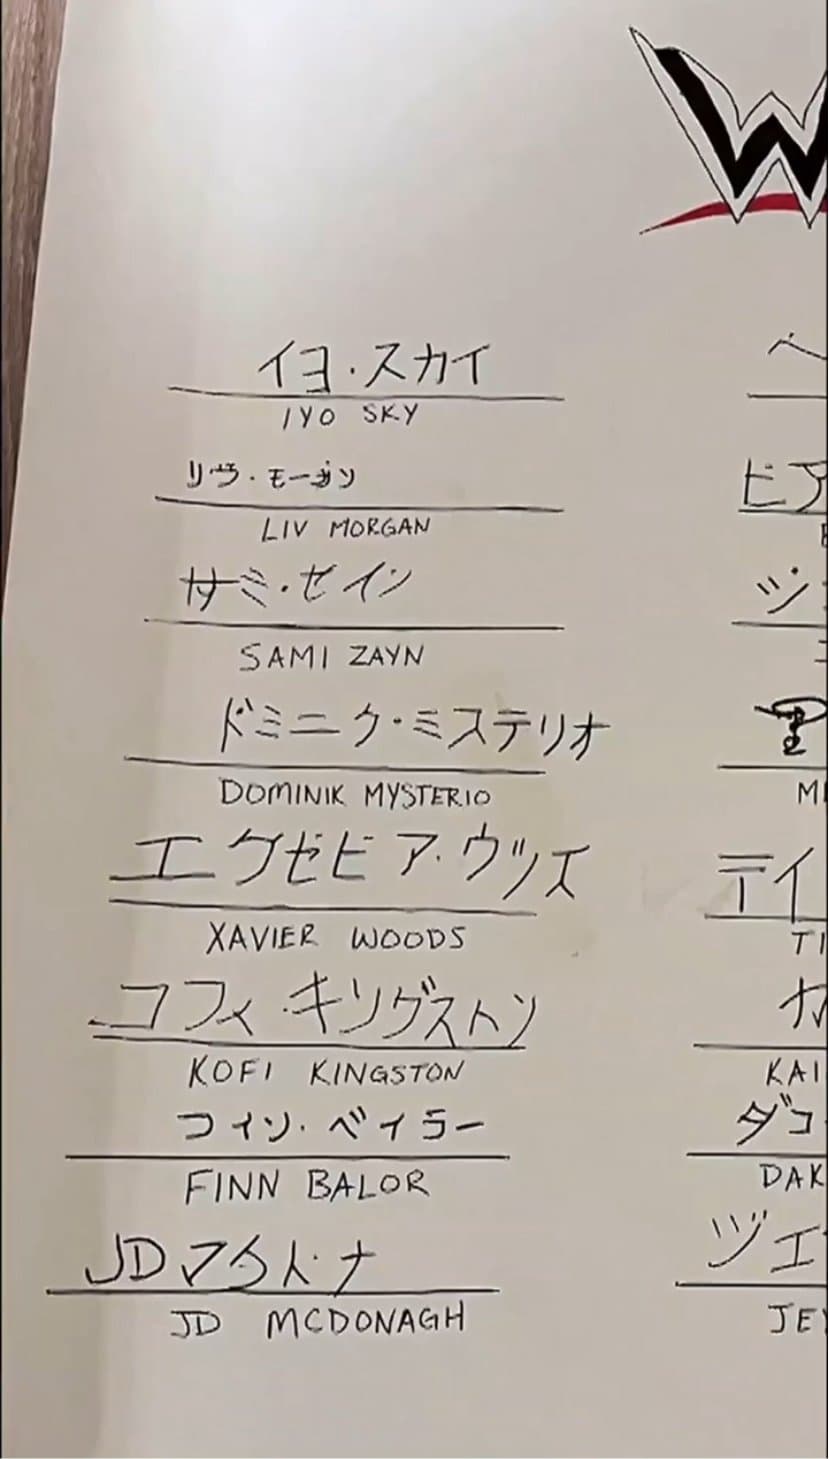 W
イヨ・スカイ
IYO SKY
リヴ・モーガン
LIV MORGAN
サミ・ゼイン
SAMI ZAYN
ドミニク・ミステリオ
DOMINIK MYSTERIO
エクゼビア・ウッズ
XAVIER WOODS
コフィ・キングストン
KOFI KINGSTON
フィン・ベイラー
FINN BALOR
JDマクドナ
JD MCDONAGH
ピア
ジ
MI
ティ
TI
カ
KAI
ダコ
DAK
ジェ
JEY